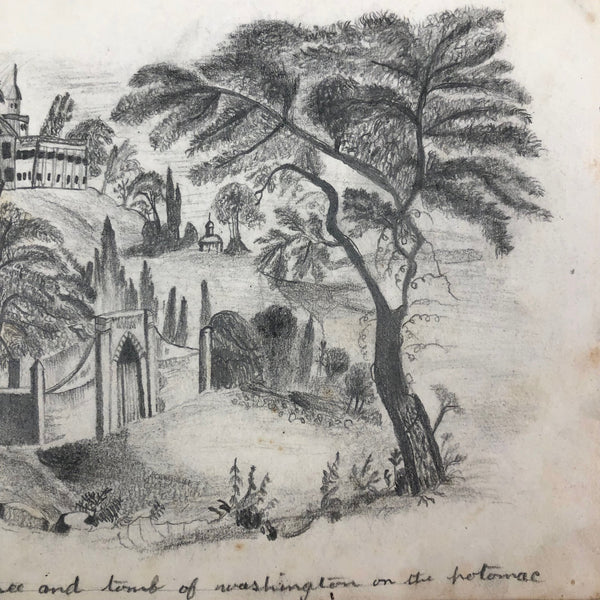 and tomb of washington on the potomac